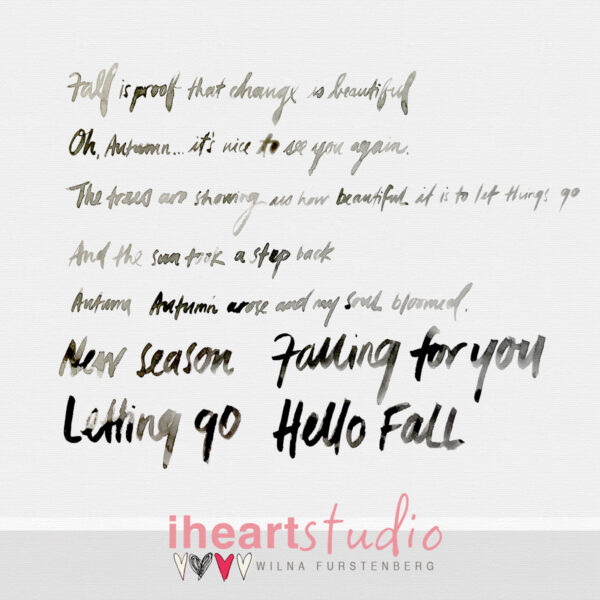 Fall is proof that change is beautiful
Oh, Autumn... it's nice to see you again.
The trees are showing us how beautiful it is to let things go
And the sun took a step back
Autumn Autumn arose and my soul bloomed.
New season Falling for you
Letting go Hello Fall
iheartstudio
WILNA FURSTENBERG